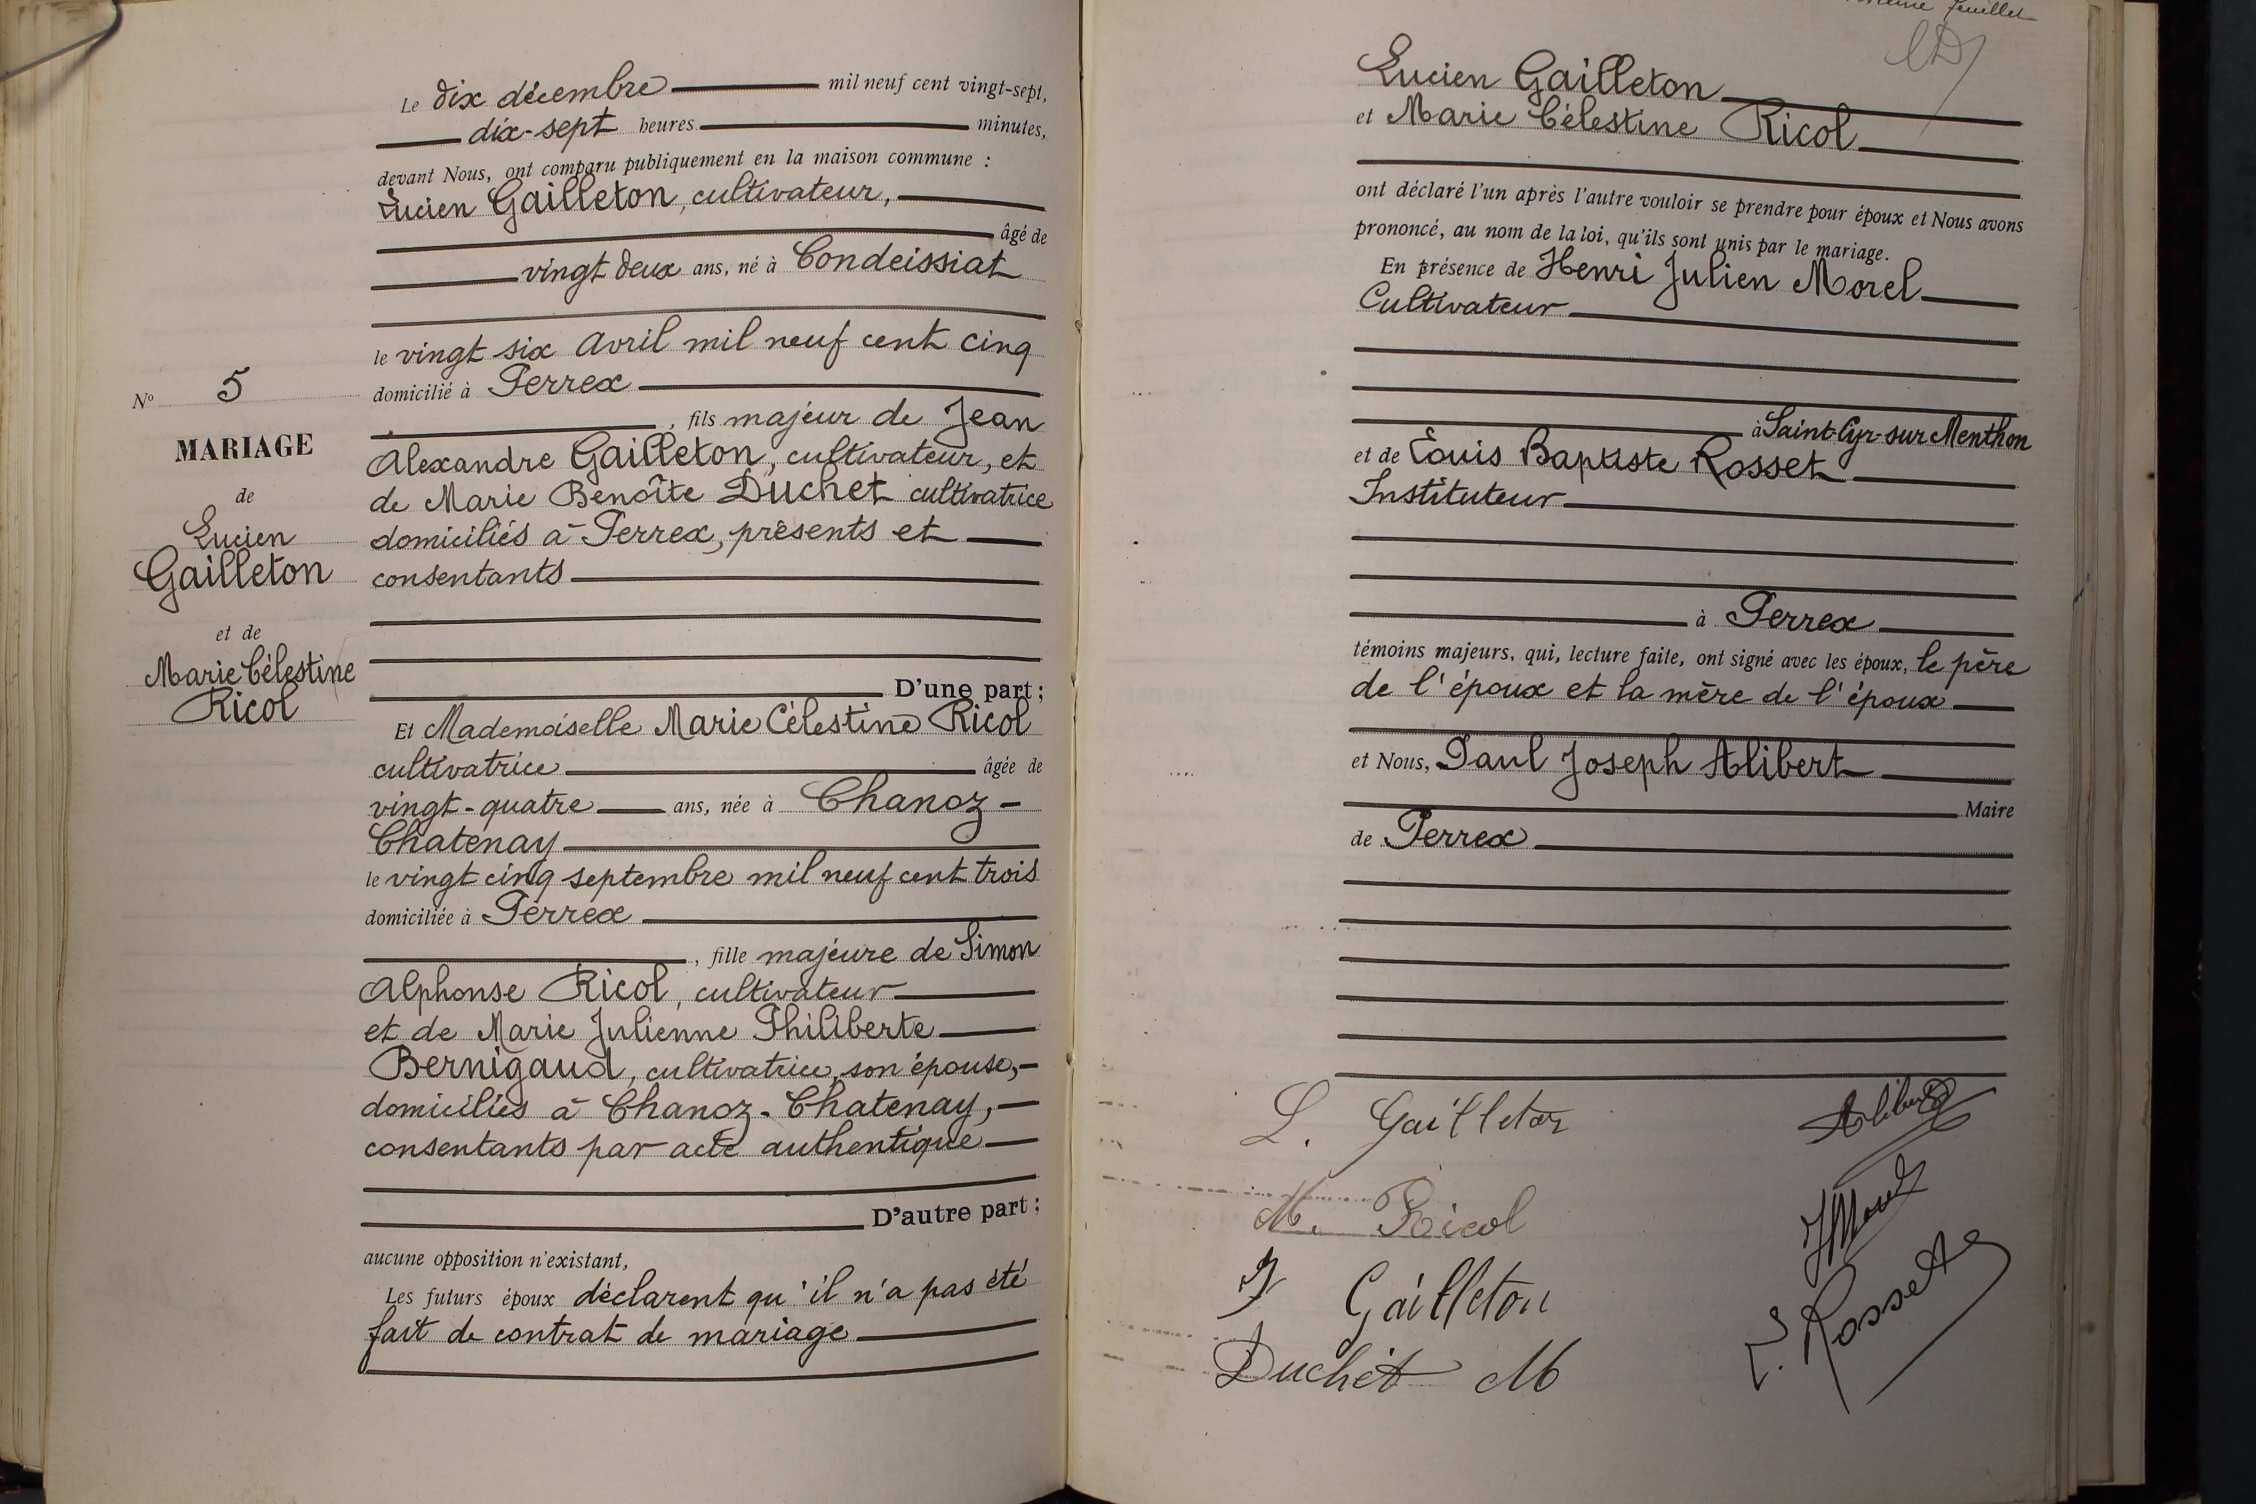 Le dix décembre mil neuf cent vingt-sept,
dix-sept heures minutes,
devant Nous, ont comparu publiquement en la maison commune :
Lucien Gailleton, cultivateur,
âgé de
vingt deux ans, né à Condeissiat
le vingt six Avril mil neuf cent cinq
domicilié à Perrex
, fils majeur de Jean
Alexandre Gailleton, cultivateur, et
de Marie Benoîte Duchet cultivatrice
domiciliés à Perrex, présents et
consentants
D'une part ;
Nº 5
MARIAGE
de
Lucien
Gailleton
et de
Marie Célestine
Ricol
Et Mademoiselle Marie Célestine Ricol
cultivatrice âgée de
vingt-quatre ans, née à Chanoz-
Chatenay
le vingt cinq septembre mil neuf cent trois
domiciliée à Perrex
, fille majeure de Simon
Alphonse Ricol, cultivateur
et de Marie Julienne Philiberte
Bernigaud, cultivatrice, son épouse,
domiciliés à Chanoz-Chatenay,
consentants par acte authentique
D'autre part ;
aucune opposition n'existant,
Les futurs époux déclarent qu'il n'a pas été
fait de contrat de mariage
feuillet
Lucien Gailleton
et Marie Célestine Ricol
ont déclaré l'un après l'autre vouloir se prendre pour époux et Nous avons
prononcé, au nom de la loi, qu'ils sont unis par le mariage.
En présence de Henri Julien Morel
Cultivateur
à Saint-Cyr-sur Menthon
et de Louis Baptiste Rosset
Instituteur
à Perrex
témoins majeurs, qui, lecture faite, ont signé avec les époux, le père
de l'époux et la mère de l'époux
et Nous, Paul Joseph Alibert
Maire
de Perrex
L. Gailleton
Alibert
M. Ricol
J Morel
J Gailleton
L. Rosset
Duchet M